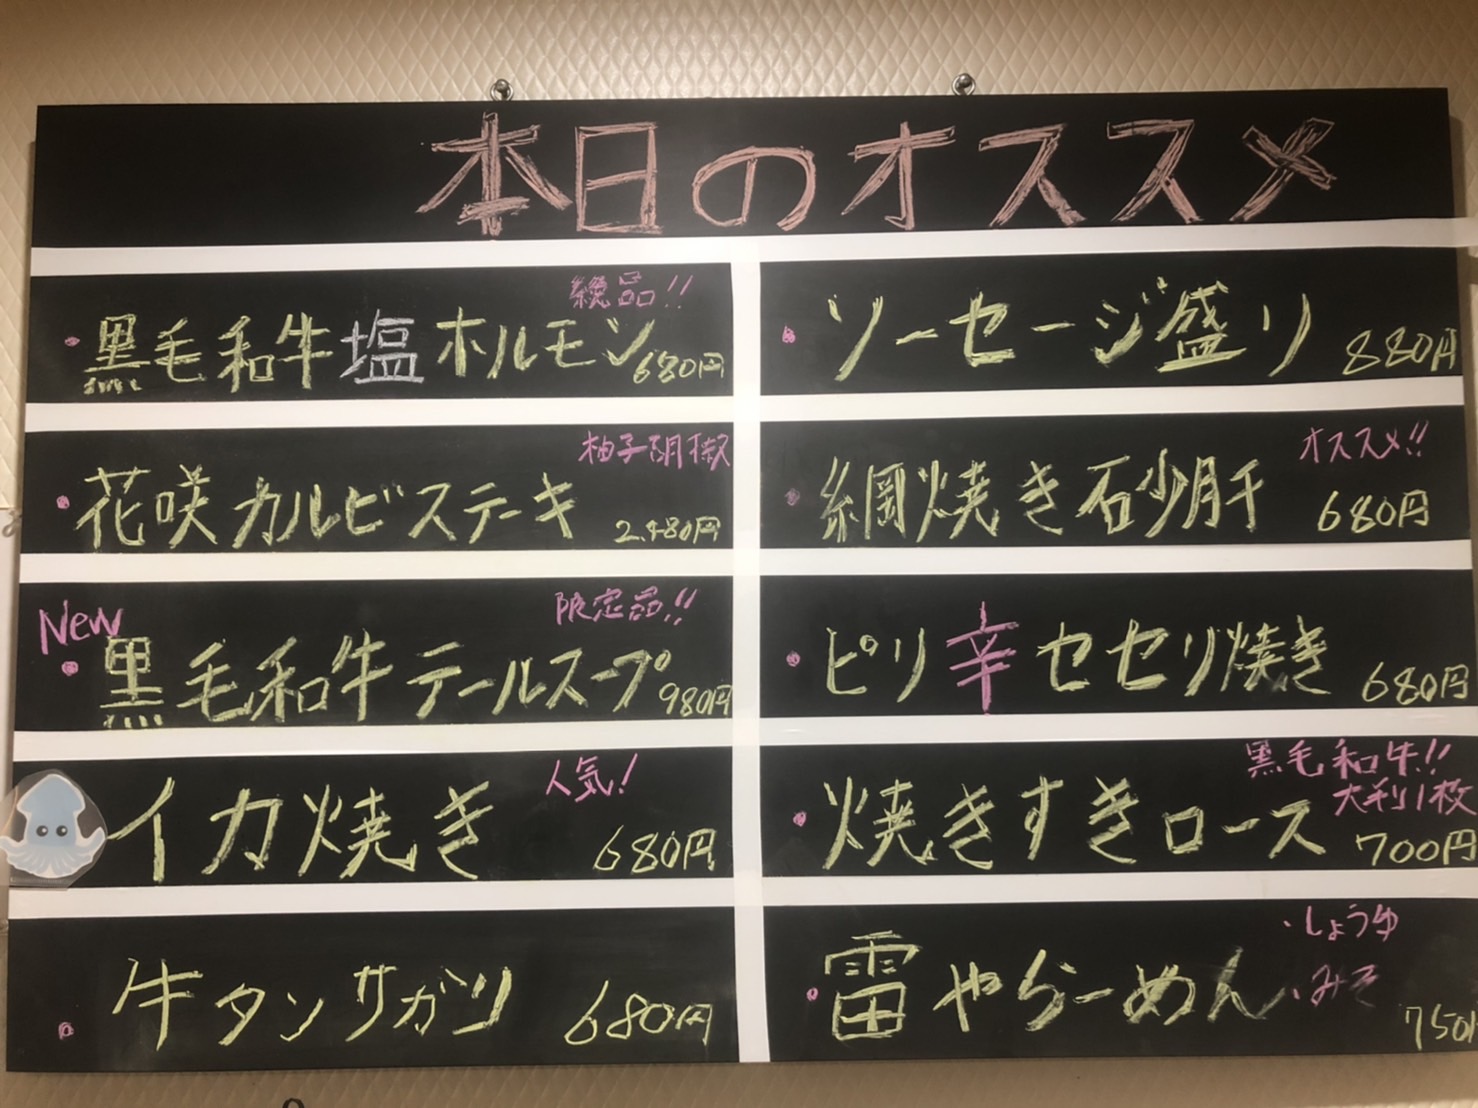 本日のオススメ
絶品!!
・黒毛和牛塩ホルモン 680円
柚子胡椒
・花咲カルビステーキ 2,480円
New
限定品!!
・黒毛和牛テールスープ 980円
人気!
イカ焼き 680円
・牛タンサガリ 680円
・ソーセージ盛り 880円
オススメ!!
・網焼き砂肝 680円
・ピリ辛セセリ焼き 680円
黒毛和牛!!
大判1枚
・焼きすきロース 700円
・しょうゆ
・雷やらーめん ・みそ
750円